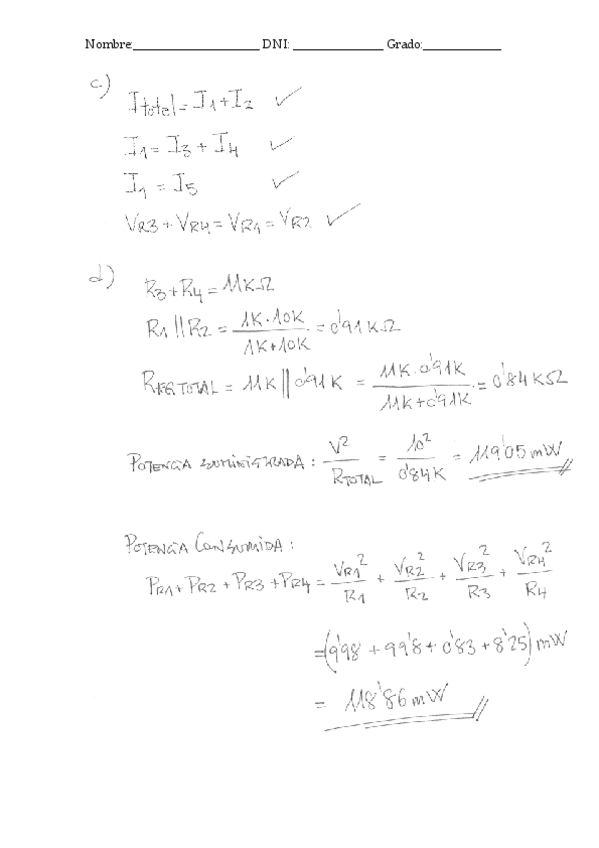 Nombre:____________________ DNI: ______________ Grado:____________
c)
I total = I1 + I2 ✓
I1 = I3 + I4 ✓
I1 = I5 ✓
VR3 + VR4 = VR1 = VR2 ✓
d)
R3 + R4 = 11KΩ
R1 || R2 = 1K·10K / 1K+10K = 0'91 KΩ
REQ TOTAL = 11K || 0'91K = 11K·0'91K / 11K+0'91K = 0'84 KΩ
POTENCIA SUMINISTRADA: V² / RTOTAL = 10² / 0'84K = 119'05 mW
POTENCIA CONSUMIDA:
PR1 + PR2 + PR3 + PR4 = VR1² / R1 + VR2² / R2 + VR3² / R3 + VR4² / R4
= (9'98 + 99'8 + 0'83 + 8'25) mW
= 118'86 mW